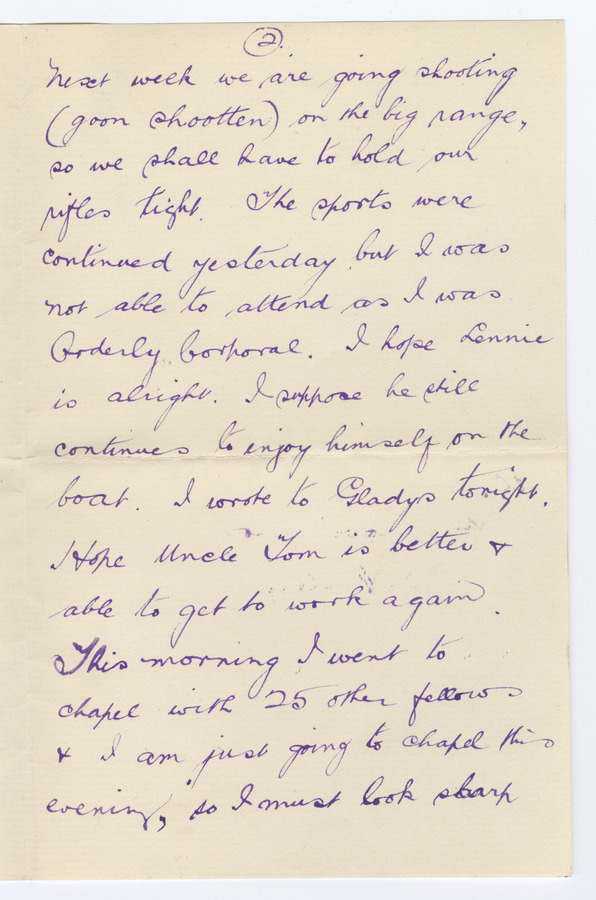 2.
Next week we are going shooting
(goon shootten) on the big range,
so we shall have to hold our
rifles tight. The sports were
continued yesterday but I was
not able to attend as I was
Orderly Corporal. I hope Lennie
is alright. I suppose he still
continues to injoy himself on the
boat. I wrote to Gladys tonight.
I Hope Uncle Tom is better &
able to get to work again.
This morning I went to
chapel with 25 other fellows
& I am just going to chapel this
evening, so I must look sharp